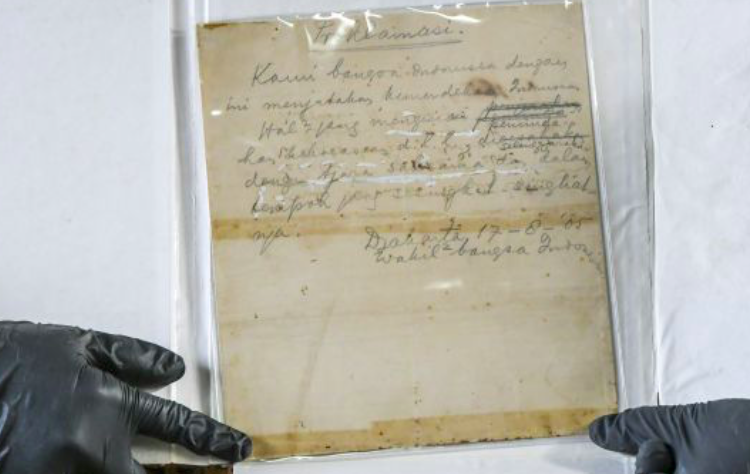 Proklamasi.
Kami bangsa Indonesia dengan
ini menjatakan kemerdekaan Indonesia
Hal² jang mengenai
pemindahan
kekoeasaan d.l.l.,
dengan tjara saksama dan dalam
tempoh jang sesingkat-singkat
nja.
Djakarta, 17 - 8 - '05
Wakil² bangsa Indon